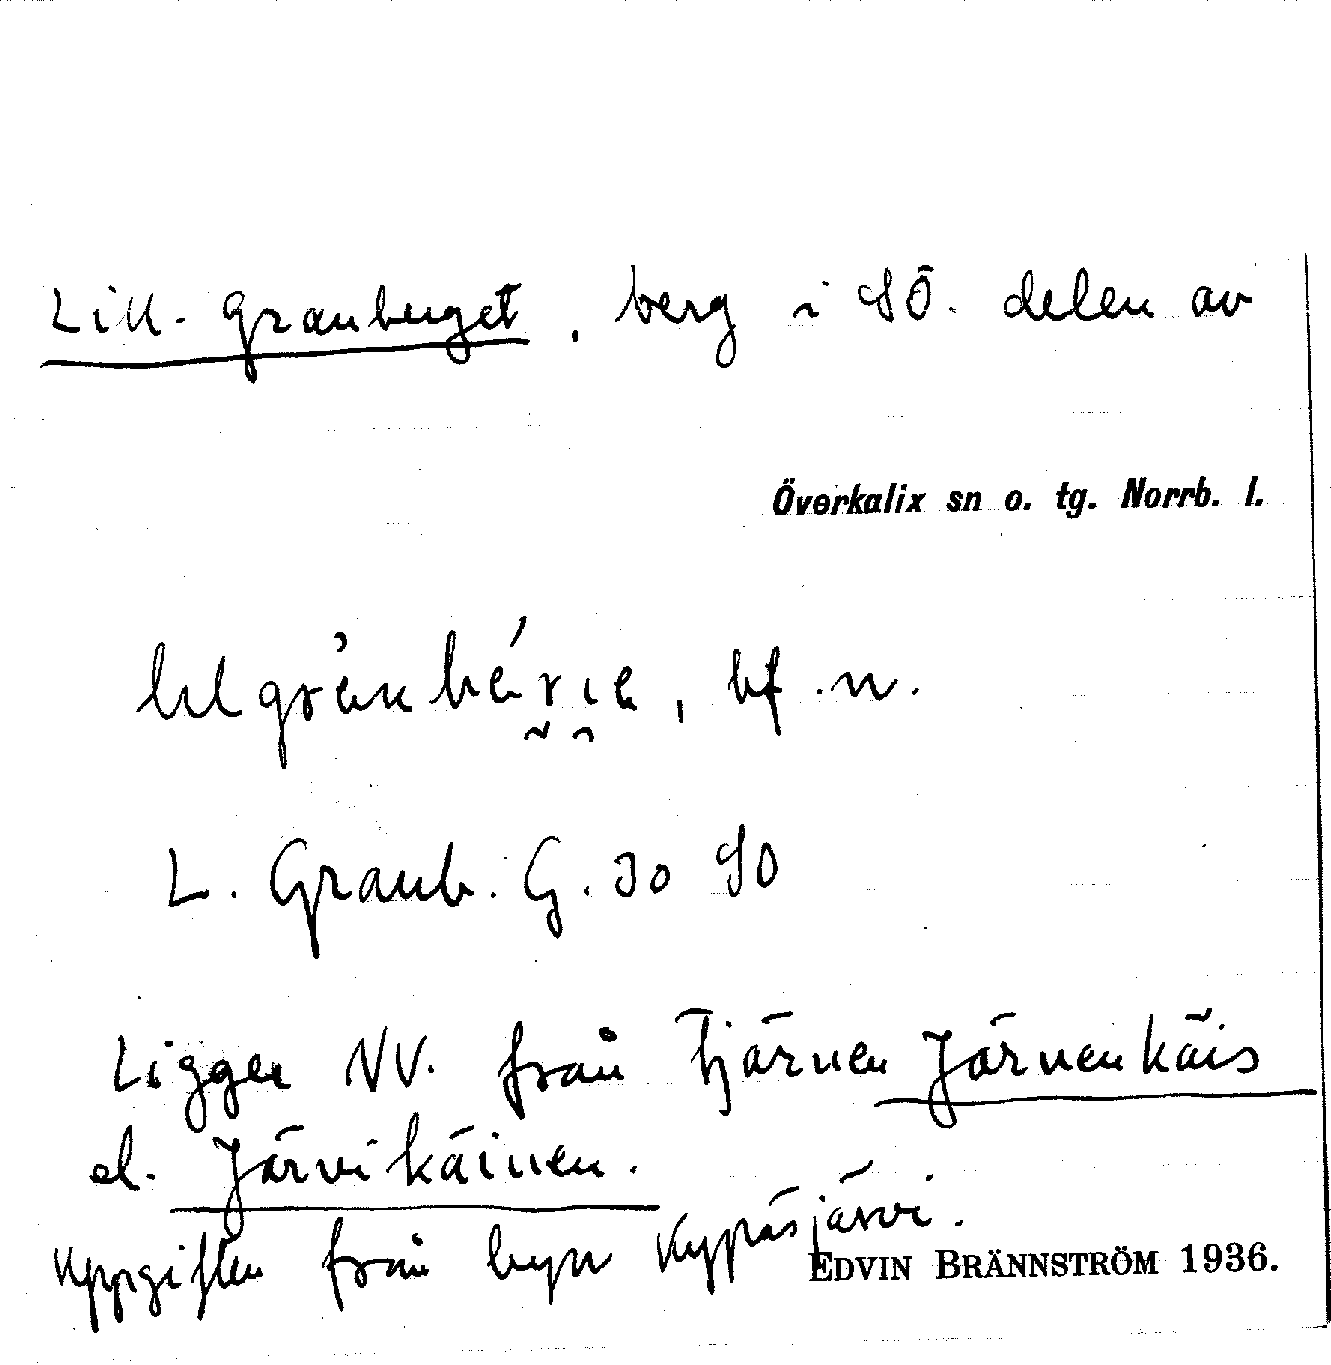 Lill-Granberget, berg i SÖ. delen av
Överkalix sn o. tg. Norrb. l.
bf. n.
L. Granb. G. 30 SO
Ligger NV. från Tjärnen Järvenkäis
el. Järvikäinen.
Uppgiften från byn Kypäsjärvi.
EDVIN BRÄNNSTRÖM 1936.